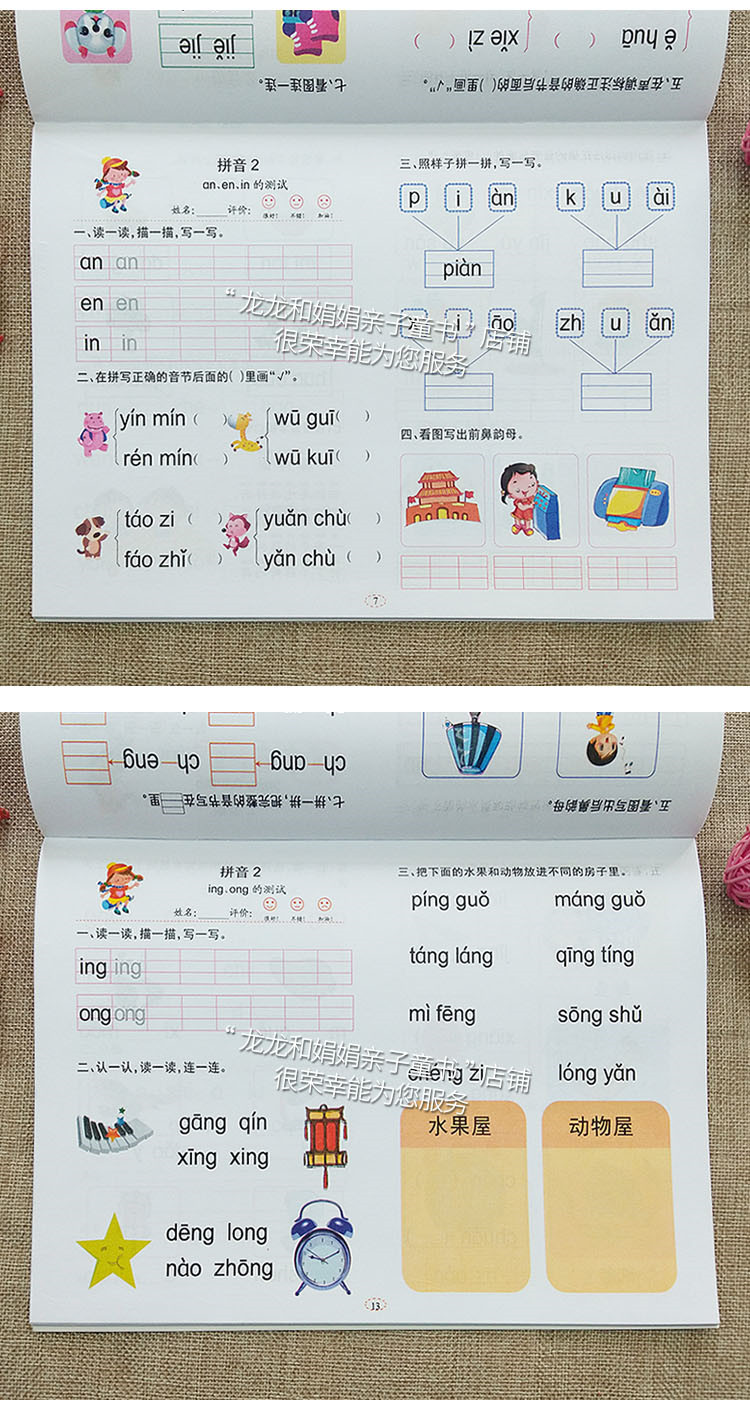 jiě jie
xiě zì ( )
ě huā ( )
七、看图连一连。
五、在声调标注正确的音节后面的( )里画“√”。
拼音 2
an、en、in 的测试
姓名: 评价:
很好! 不错! 加油!
一、读一读,描一描,写一写。
an an
en en
in in
二、在拼写正确的音节后面的( )里画“√”。
yín mín ( )
rén mín ( )
wū guī ( )
wū kuī ( )
táo zi ( )
fáo zhǐ ( )
yuǎn chù ( )
yǎn chù ( )
三、照样子拼一拼,写一写。
p i àn
k u ài
piàn
i āo
zh u ǎn
四、看图写出前鼻韵母。
7
“龙龙和娟娟亲子童书”店铺
很荣幸能为您服务
ch eng
ch ang
七、拼一拼,把完整的音节写在 里。
五、看图写出后鼻韵母。
拼音 2
ing、ong 的测试
姓名: 评价:
很好! 不错! 加油!
一、读一读,描一描,写一写。
ing ing
ong ong
二、认一认,读一读,连一连。
gāng qín
xīng xing
dēng long
nào zhōng
三、把下面的水果和动物放进不同的房子里。
píng guǒ máng guǒ
táng láng qīng tíng
mì fēng sōng shǔ
chéng zi lóng yǎn
水果屋 动物屋
13
“龙龙和娟娟亲子童书”店铺
很荣幸能为您服务